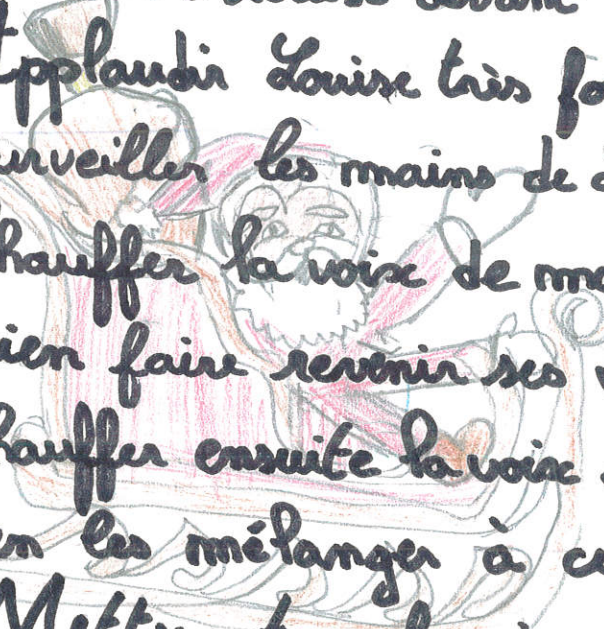 devant
Applaudir Louise très fo
urveiller les mains de
hauffer la voix de ma
ien faire revenir ses v
hauffer ensuite la voix
en les mélanger à cu
Mettre